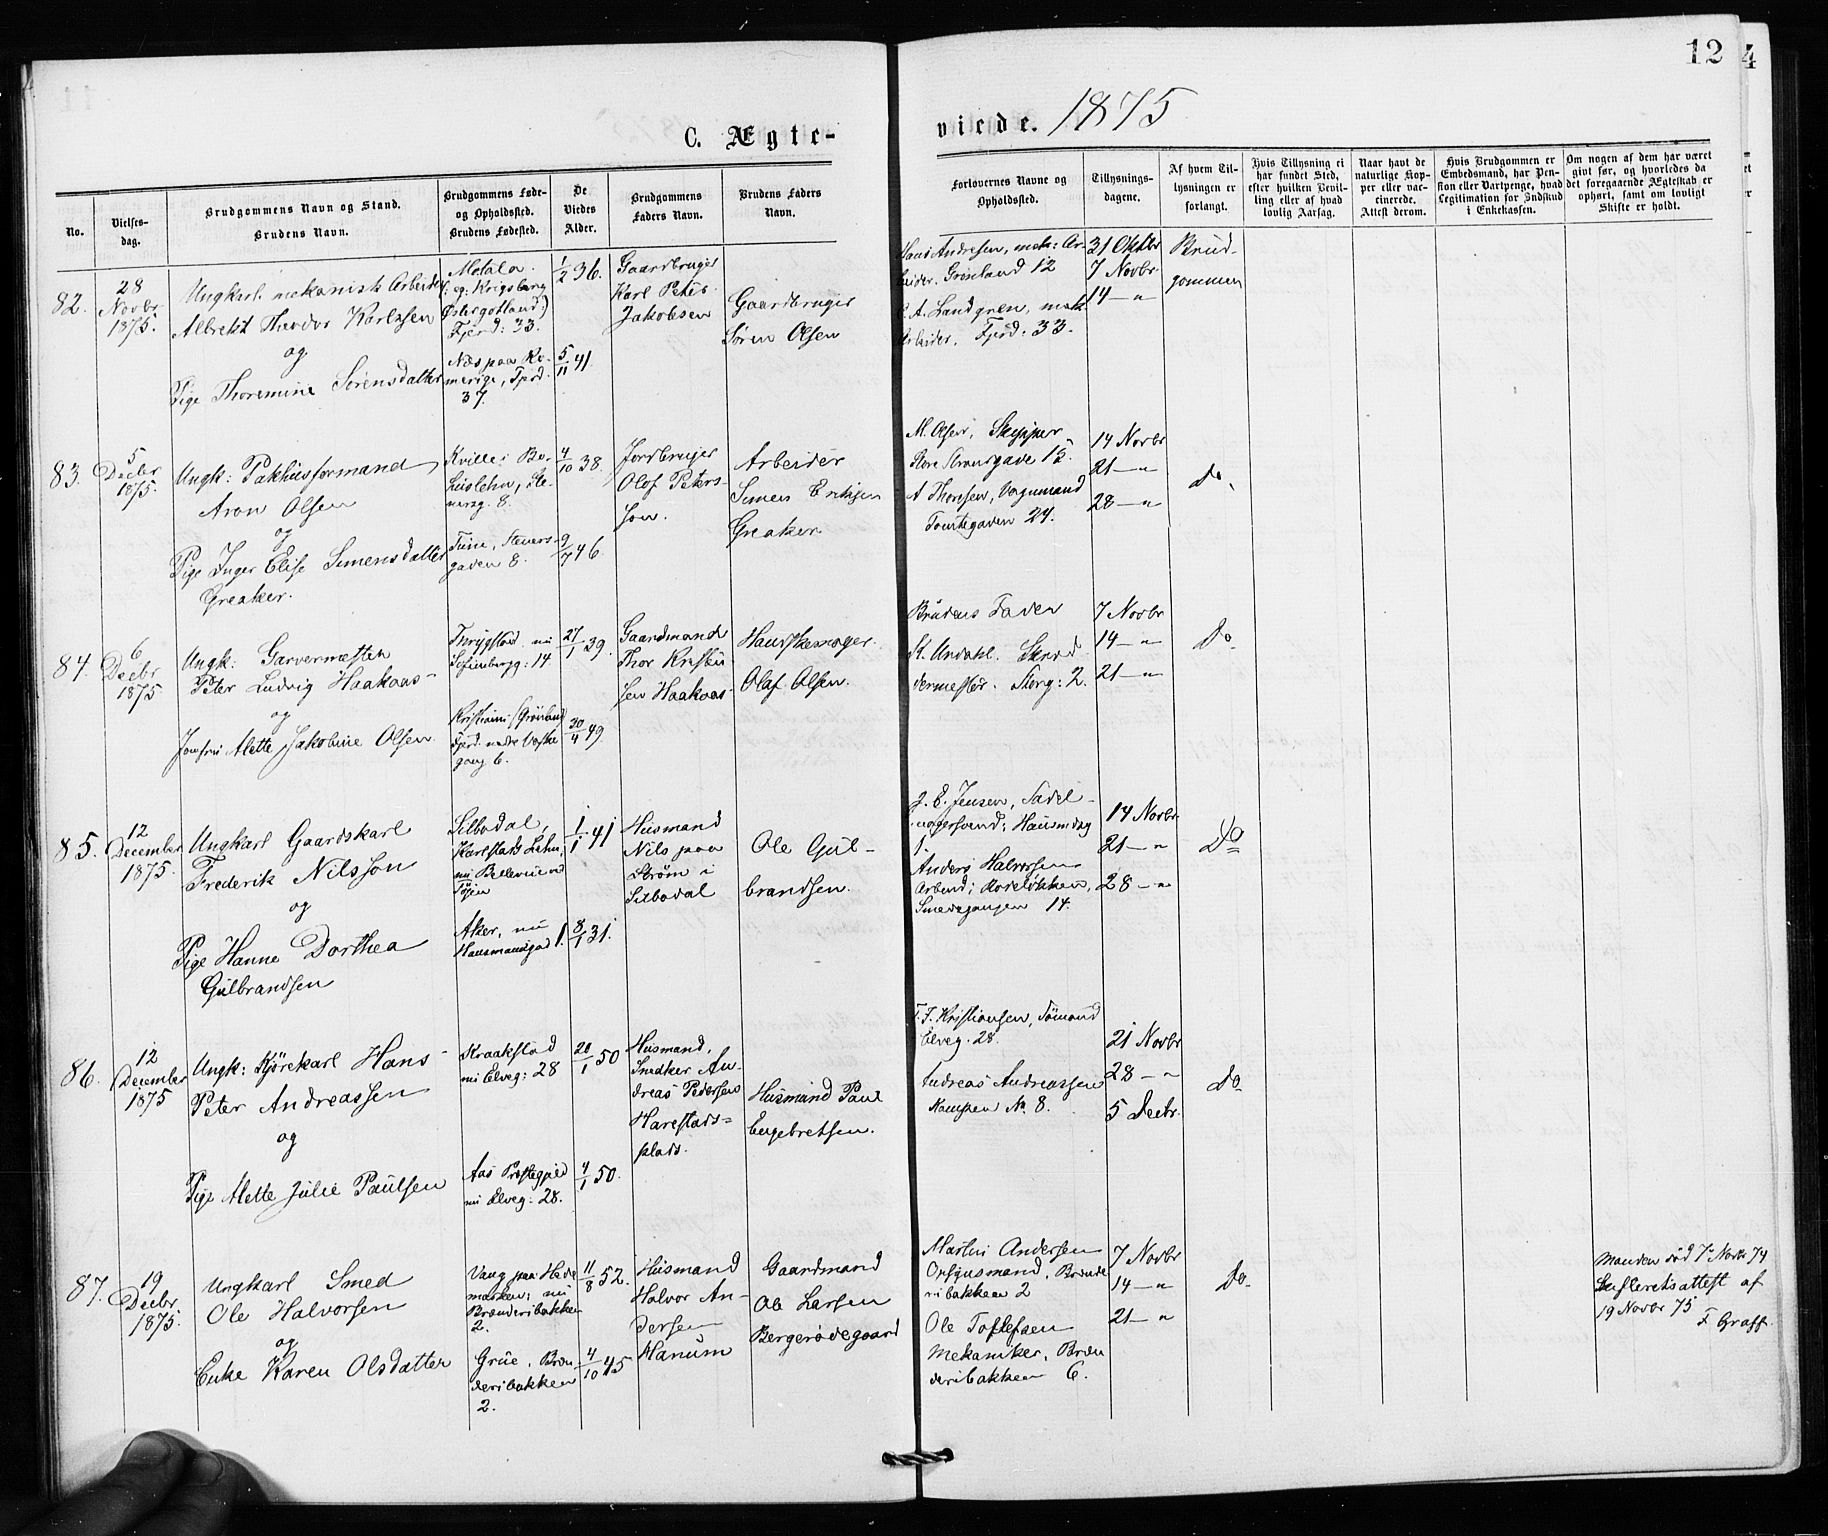 12
4
C. Ægte-
viede. 1875
No.
Vielses-
dag.
Brudgommens Navn og Stand.
Brudens Navn.
Brudgommens Føde-
og Opholdssted.
Brudens Fødested.
De
Viedes
Alder.
Brudgommens
Faders Navn.
Brudens Faders
Navn.
Forlovernes Navne og
Opholdssted.
Tillysnings-
dagene.
Af hvem Til-
lysningen er
forlangt.
Hvis Tillysning ei
har fundet Sted,
efter hvilken Bevil-
ling eller af hvad
lovlig Aarsag.
Naar havt de
naturlige Kop-
per eller vac-
cinerede.
Attest derom.
Hvis Brudgommen er
Embedsmand, har Pen-
sion eller Vartpenge, hvad
Legitimation for Indskud
i Enkekassen.
Om nogen af dem har været
givt før, og hvorledes da
det foregaaende Ægteskab er
ophørt, samt om lovligt
Skifte er holdt.
82.
28
Novbr
1875.
Ungkarl. mekanisk Arbeider
Albrekt Theodor Karlsson
og
Pige Thoremine Sørensdatter
Motala
Krigsberg
Østergotland:)
Fjerd: 33.
Næs paa Ro-
merige, Fjrd.
37.
1/2 36.
5/11 41.
Gaardbruger
Karl Peter
Jakobsen
Gaardbruger
Søren Olsen
Hans Andresen, mek: Ar-
beider. Grønland 12
A. Landgren, mek
Arbeider. Fjrd: 33.
31 Oktbr
7 Novbr
14 — "
Brud-
gommen
83.
5
Decbr
1875.
Ungk: Pakhusformand
Aron Olsen
og
Pige Inger Elise Simensdatter
Greaker.
Kville i Bo-
huslehn, Ste-
nersg. 8.
Tune, Steners-
gaden 8.
4/10 38.
9/7 46.
Jordbruger
Olof Peters-
son.
Arbeider
Simen Eriksen
Greaker.
M. Olsen, Skipper
Store Strandgade 15.
A Thoresen, Vognmand
Tomtegaden 24.
14 Novbr
21 — "
28 — "
do.
84.
6
Decbr
1875
Ungk: Garvermester
Peter Ludvig Haakaas-
og
Jomfru Alette Jakobine Olsen
Thrygstad nu
Sofienbergg: 14
Kristiania (Grønland)
Fjrd. nedre Vaske
gang 6.
27/1 39.
30/4 49.
Gaardmand
Thor Kristen
sen Haakaas-
Handskemager
Olaf Olsen.
Brudens Fader
K. Undahl. Skræd
dermester. Storg: 2.
7 Novbr
14 — "
21 — "
Do
85.
12
December
1875.
Ungkarl Gaardskarl
Frederik Nilsson
og
Pige Hanne Dorthea
Gulbrandsen
Silbodal,
Karlstads Lehn,
nu Bellevue ved
Tøien
Aker, nu
Hausmandsgad 1.
1/1 41
8/1 31.
Husmand
Nils paa
Strøm i
Silbodal
Ole Gul-
brandsen.
J. E. Jensen, Sadel-
magersvend; Hausmdsg
1.
Anders Halvorsen
Arbeid; Rodeløkken,
Smedegangen 14.
14 Novbr
21 — "
28 — "
Do
86.
12
December
1875
Ungk: Kjørekarl Hans
Peter Andreassen
og
Pige Alette Julie Paulsen
Kraakstad
nu Elveg: 28
Aas Præstegjeld
nu Elveg: 28.
20/1 50
4/1 50.
Husmand,
Snedker An-
dreas Pedersen
Harestads-
plads.
Husmand Paul
Engebretsen.
Kristiansen, Sømand
Elveg. 28.
Andreas Andreassen
Kampen No 8.
21 Novbr
28 — "
5 Decbr.
Do
87.
19
Decbr
1875.
Ungkarl Smed
Ole Halvorsen
og
Enke Karen Olsdatter
Vang paa Hede
marken; nu
Brænderibakken
2.
Grue, Bræn
deribakken
2.
11/8 52.
4/10 45
Husmand
Halvor An-
dersen
Hanum
Gaardmand
Ole Larsen
Bergerødegaard
Martin Andersen
Opsynsmand, Brænde
ribakken 2
Ole Toftefsen
Mekaniker, Bræn
deribakken 6.
7 Novbr
14 — "
21 — "
Do.
Manden død 7 Novbr 74
Skifteretsattest af
19 Novbr 75 F Graff